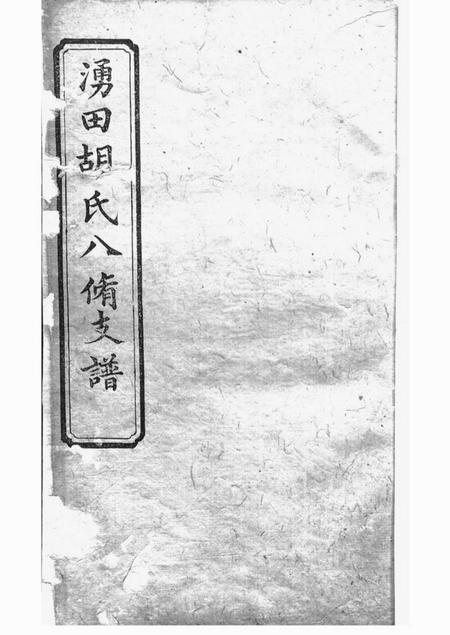 湧田胡氏八脩支譜